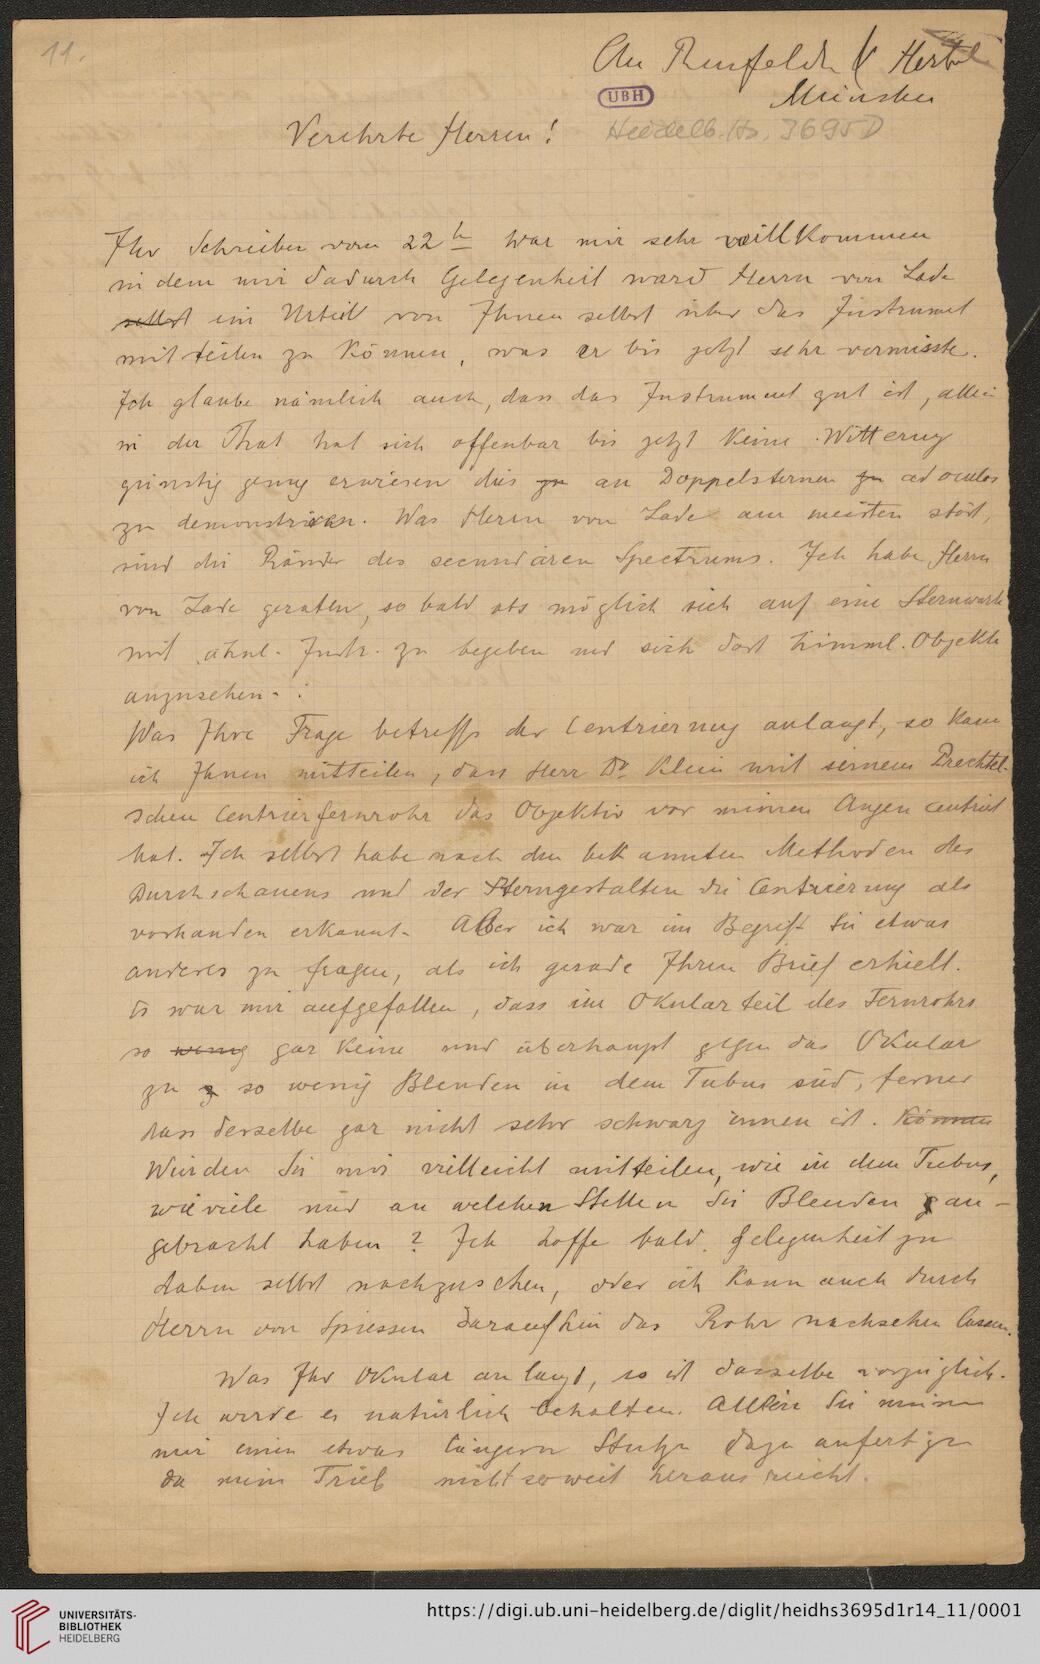 11.
An Reinfelder & Hertel
München
UBH
Heidelb. Hs. 3695 D
Verehrte Herren!
Ihr Schreiben vom 22 war mir sehr willkommen
in dem mir dadurch Gelegenheit ward Herrn von Lade
selbst ein Urteil von Ihnen selbst über das Instrument
mit teilen zu können, was er bis jetzt sehr vermisste.
Ich glaube nämlich auch, dass das Instrument gut ist, allein
in der That hat sich offenbar bis jetzt keine Witterung
günstig genug erwiesen dies zu an Doppelsternen zu ad oculos
zu demonstriren. Was Herrn von Lade am meisten stört,
sind die Ränder des secundären Spectrums. Ich habe Herrn
von Lade geraten, so bald als möglich sich auf eine Sternwarte
mit ähnl. Instr. zu begeben und sich dort himml. Objekte
anzusehen.
Was Ihre Frage betreffs der Centrierung anlangt, so kann
ich Ihnen mitteilen, dass Herr Dr Klein mit seinem Prechtel-
schen Centrierfernrohr das Objektiv vor meinen Augen centriert
hat. Ich selbst habe nach den bekannten Methoden des
Durchschauens und der Sterngestalten die Centrierung als
vorhanden erkannt. Aber ich war im Begriff Sie etwas
anderes zu fragen, als ich gerade Ihren Brief erhielt.
Es war mir aufgefallen, dass im Okularteil des Fernrohrs
so wenig gar keine und überhaupt gegen das Okular
zu so wenig Blenden in dem Tubus sind, ferner
dass derselbe gar nicht sehr schwarz innen ist. Können
Würden Sie mir vielleicht mitteilen, wie in dem Tubus,
wieviele und an welchen Stellen Sie Blenden an-
gebracht haben? Ich hoffe bald Gelegenheit zu
haben selbst nachzusehen, oder ich kann auch durch
Herrn von Spiessen daraufhin das Rohr nachsehen lassen.
Was Ihr Okular anlangt, so ist dasselbe vorzüglich.
Ich werde es natürlich behalten. Allein Sie müssen
mir einen etwas längeren Stutzen dazu anfertigen
da mein Trieb nicht so weit heraus reicht.
UNIVERSITÄTS-
BIBLIOTHEK
HEIDELBERG
https://digi.ub.uni-heidelberg.de/diglit/heidhs3695d1r14_11/0001